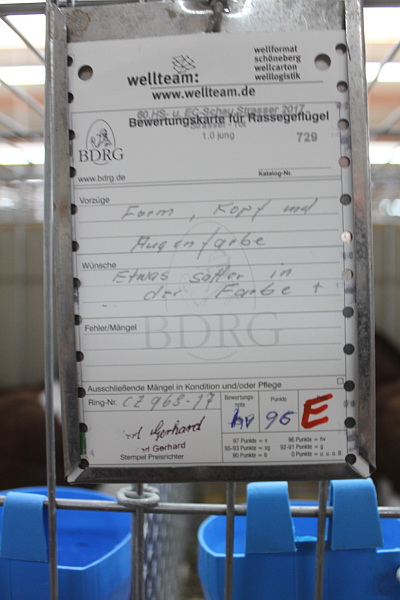 wellteam:
www.wellteam.de
wellformat
schöneberg
wellcarton
welllogistik
60.HS- u. EC-Schau Strasser 2017
Bewertungskarte für Rassegeflügel
Strasser - rot
1.0 jung
729
BDRG
www.bdrg.de
Katalog-Nr.
Vorzüge
Form, Kopf und
Augenfarbe
Wünsche
Etwas satter in
der Farbe +
Fehler/Mängel
BDRG
Ausschließende Mängel in Kondition und/oder Pflege
Ring-Nr. CZ 963-17
Bewertungs-
note
Punkte
hv 96 E
Gerhard
Gerhard
Stempel Preisrichter
97 Punkte = v 96 Punkte = hv
95-93 Punkte = sg 92-91 Punkte = g
90 Punkte = b 0 Punkte = u. o. B.